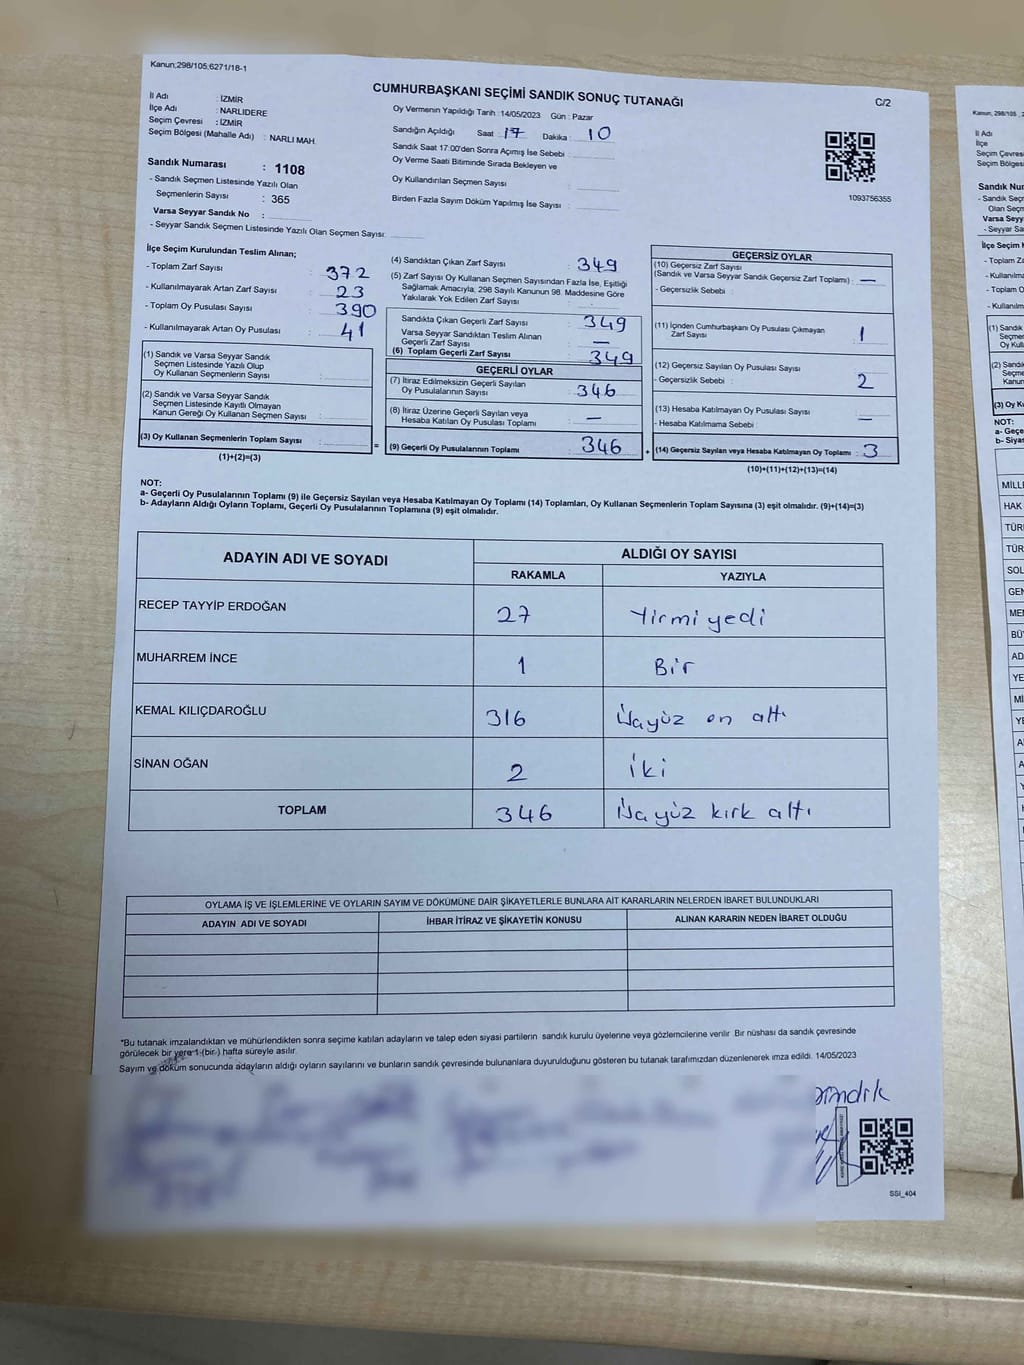 Kanun;298/105;6271/18-1
CUMHURBAŞKANI SEÇİMİ SANDIK SONUÇ TUTANAĞI
C/2
İl Adı : İZMİR
İlçe Adı : NARLIDERE
Seçim Çevresi : İZMİR
Seçim Bölgesi (Mahalle Adı) : NARLI MAH.
Oy Vermenin Yapıldığı Tarih : 14/05/2023 Gün : Pazar
Sandığın Açıldığı Saat : 17 Dakika : 10
Sandık Saat 17:00'den Sonra Açımış İse Sebebi :
Oy Verme Saati Bitiminde Sırada Bekleyen ve
Oy Kullandırılan Seçmen Sayısı :
Birden Fazla Sayım Döküm Yapılmış İse Sayısı :
1093756355
Sandık Numarası : 1108
- Sandık Seçmen Listesinde Yazılı Olan
Seçmenlerin Sayısı : 365
Varsa Seyyar Sandık No :
- Seyyar Sandık Seçmen Listesinde Yazılı Olan Seçmen Sayısı:
İlçe Seçim Kurulundan Teslim Alınan;
- Toplam Zarf Sayısı : 372
- Kullanılmayarak Artan Zarf Sayısı : 23
- Toplam Oy Pusulası Sayısı : 390
- Kullanılmayarak Artan Oy Pusulası : 41
(1) Sandık ve Varsa Seyyar Sandık
Seçmen Listesinde Yazılı Olup
Oy Kullanan Seçmenlerin Sayısı :
(2) Sandık ve Varsa Seyyar Sandık
Seçmen Listesinde Kayıtlı Olmayan
Kanun Gereği Oy Kullanan Seçmen Sayısı :
(3) Oy Kullanan Seçmenlerin Toplam Sayısı : =
(1)+(2)=(3)
(4) Sandıktan Çıkan Zarf Sayısı : 349
(5) Zarf Sayısı Oy Kullanan Seçmen Sayısından Fazla İse, Eşitliği
Sağlamak Amacıyla, 298 Sayılı Kanunun 98. Maddesine Göre
Yakılarak Yok Edilen Zarf Sayısı :
Sandıkta Çıkan Geçerli Zarf Sayısı : 349
Varsa Seyyar Sandıktan Teslim Alınan
Geçerli Zarf Sayısı : —
(6) Toplam Geçerli Zarf Sayısı : 349
GEÇERLİ OYLAR
(7) İtiraz Edilmeksizin Geçerli Sayılan
Oy Pusulalarının Sayısı : 346
(8) İtiraz Üzerine Geçerli Sayılan veya
Hesaba Katılan Oy Pusulası Toplamı : —
(9) Geçerli Oy Pusulalarının Toplamı : 346 +
GEÇERSİZ OYLAR
(10) Geçersiz Zarf Sayısı
(Sandık ve Varsa Seyyar Sandık Geçersiz Zarf Toplamı) : —
- Geçersizlik Sebebi :
(11) İçinden Cumhurbaşkanı Oy Pusulası Çıkmayan
Zarf Sayısı : 1
(12) Geçersiz Sayılan Oy Pusulası Sayısı : 2
- Geçersizlik Sebebi :
(13) Hesaba Katılmayan Oy Pusulası Sayısı : —
- Hesaba Katılmama Sebebi :
(14) Geçersiz Sayılan veya Hesaba Katılmayan Oy Toplamı : 3
(10)+(11)+(12)+(13)=(14)
NOT:
a- Geçerli Oy Pusulalarının Toplamı (9) ile Geçersiz Sayılan veya Hesaba Katılmayan Oy Toplamı (14) Toplamları, Oy Kullanan Seçmenlerin Toplam Sayısına (3) eşit olmalıdır. (9)+(14)=(3)
b- Adayların Aldığı Oyların Toplamı, Geçerli Oy Pusulalarının Toplamına (9) eşit olmalıdır.
ADAYIN ADI VE SOYADI ALDIĞI OY SAYISI
RAKAMLA YAZIYLA
RECEP TAYYİP ERDOĞAN 27 Yirmi yedi
MUHARREM İNCE 1 Bir
KEMAL KILIÇDAROĞLU 316 Üçyüz on altı
SİNAN OĞAN 2 İki
TOPLAM 346 Üçyüz kırk altı
OYLAMA İŞ VE İŞLEMLERİNE VE OYLARIN SAYIM VE DÖKÜMÜNE DAİR ŞİKAYETLERLE BUNLARA AİT KARARLARIN NELERDEN İBARET BULUNDUKLARI
ADAYIN ADI VE SOYADI İHBAR İTİRAZ VE ŞİKAYETİN KONUSU ALINAN KARARIN NEDEN İBARET OLDUĞU
*Bu tutanak imzalandıktan ve mühürlendikten sonra seçime katılan adayların ve talep eden siyasi partilerin sandık kurulu üyelerine veya gözlemcilerine verilir. Bir nüshası da sandık çevresinde
görülecek bir yere 1 (bir) hafta süreyle asılır.
Sayım ve döküm sonucunda adayların aldığı oyların sayılarını ve bunların sandık çevresinde bulunanlara duyurulduğunu gösteren bu tutanak tarafımızdan düzenlenerek imza edildi. 14/05/2023
SSI_404
Kanun; 298/105
İl Adı
İlçe
Seçim Çevresi
Seçim Bölgesi